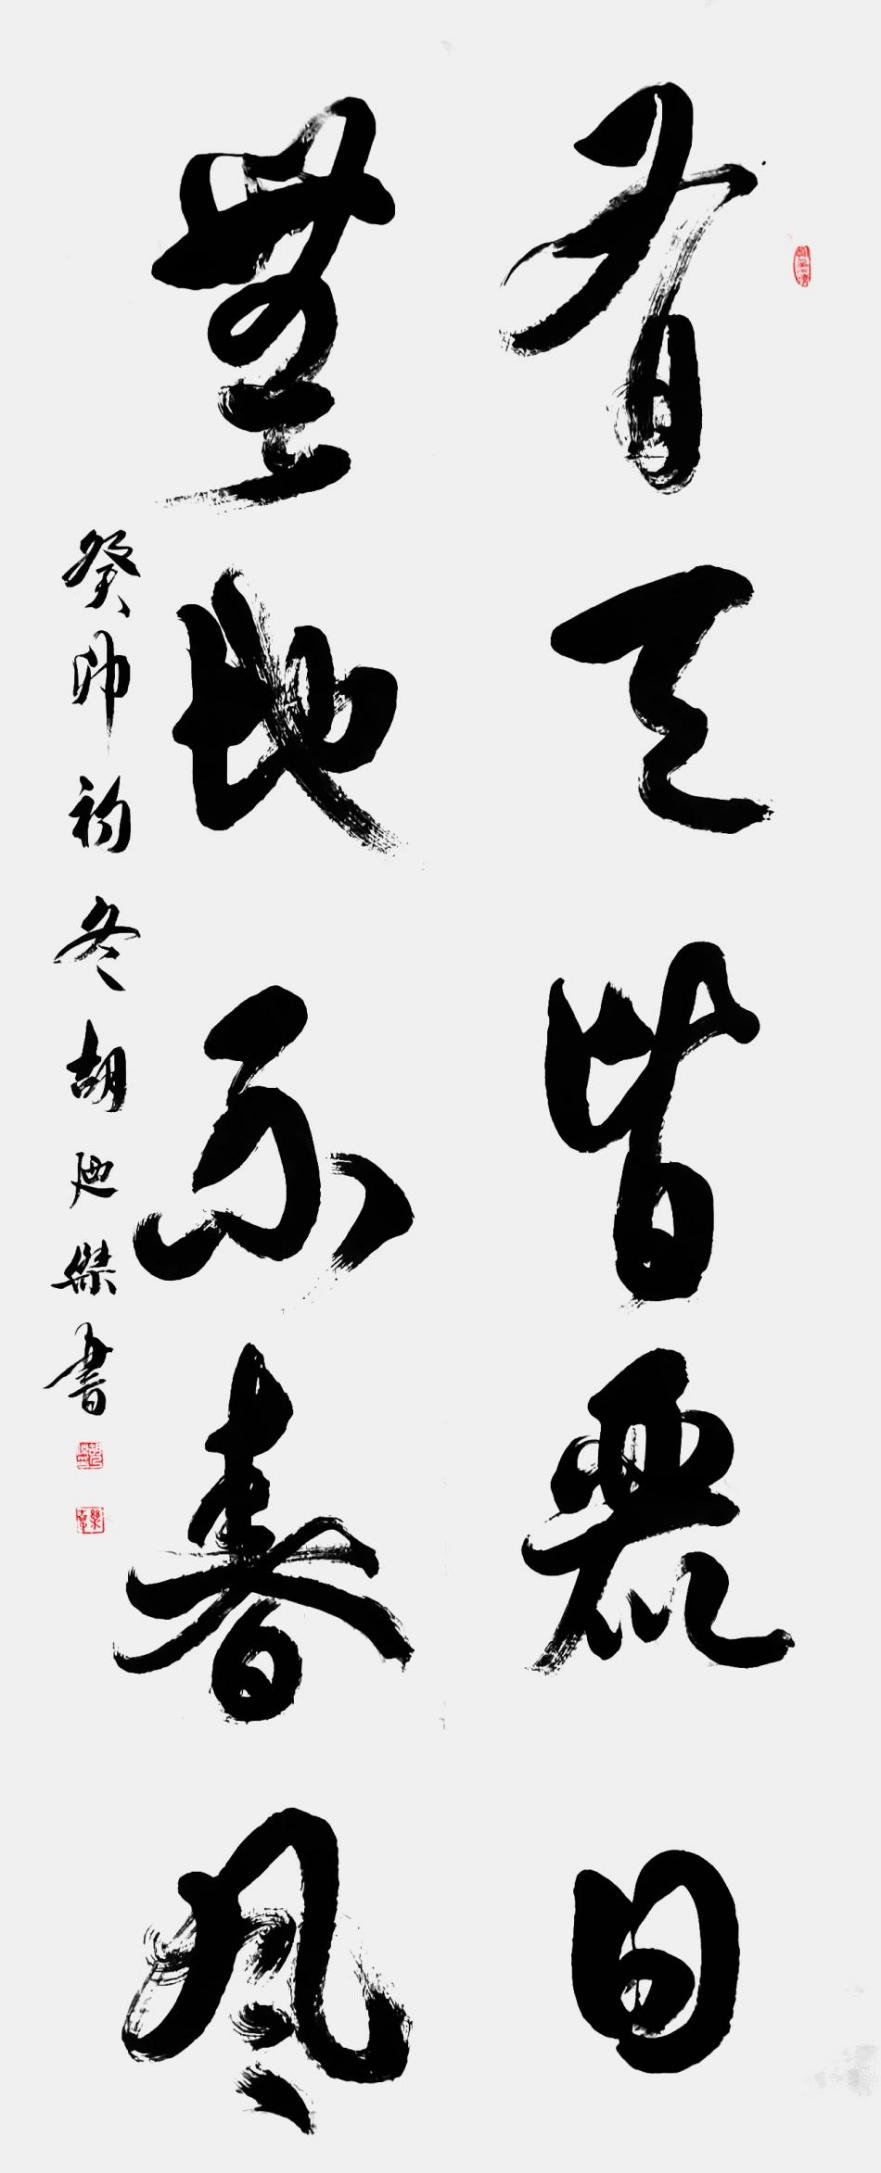 有天皆麗日
無地不春風
癸卯初冬胡延傑書